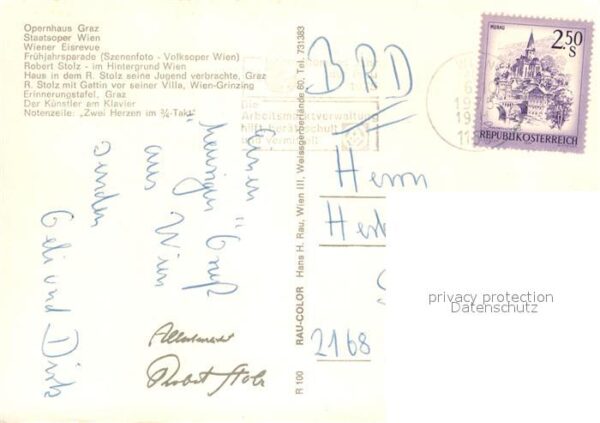 Opernhaus Graz
Staatsoper Wien
Wiener Eisrevue
Frühjahrsparade (Szenenfoto - Volksoper Wien)
Robert Stolz - im Hintergrund Wien
Haus in dem R. Stolz seine Jugend verbrachte, Graz
R. Stolz mit Gattin vor seiner Villa, Wien-Grinzing
Erinnerungstafel, Graz
Der Künstler am Klavier
Notenzeile: „Zwei Herzen im ¾-Takt"
Einen
"heurigen" Gruß
aus Wien
senden
Geli und Dirk
Robert Stolz
R 100 RAU-COLOR Hans H. Rau, Wien III, Weissgerberlände 60, Tel. 731383
BRD
Die
Arbeitsmarktverwaltung
hilft berät schult
und vermittelt
MURAU
2.50
S
REPUBLIK ÖSTERREICH
Herrn
2168
privacy protection
Datenschutz